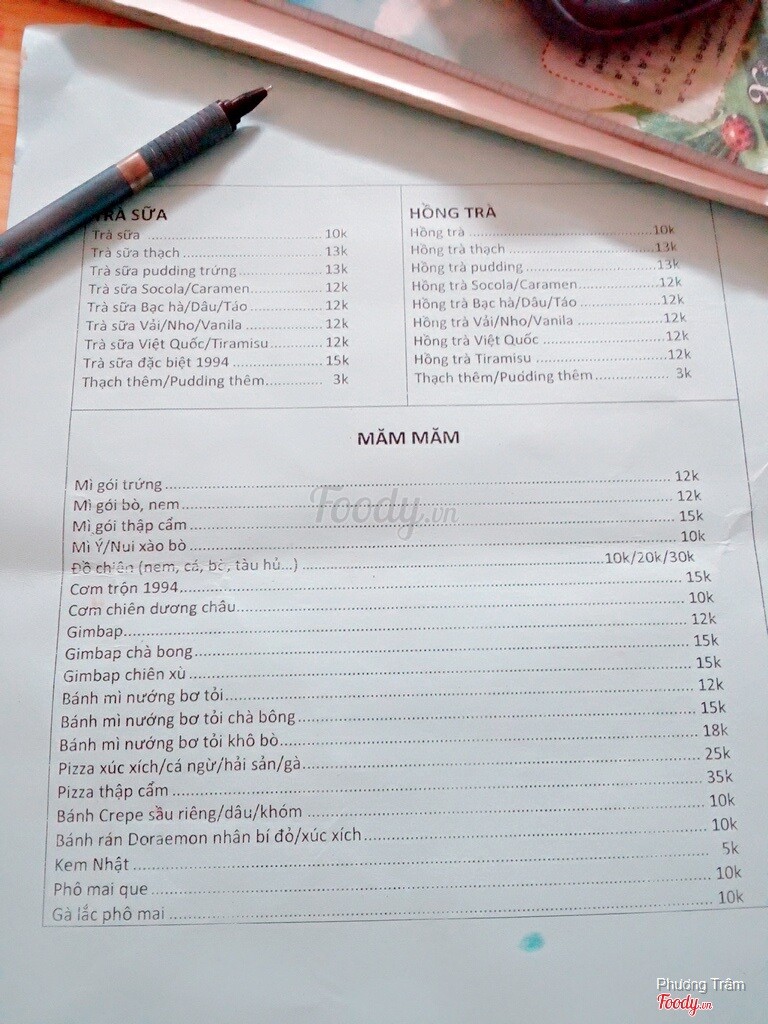 TRÀ SỮA
Trà sữa ........ 10k
Trà sữa thạch ........ 13k
Trà sữa pudding trứng ........ 13k
Trà sữa Socola/Caramen ........ 12k
Trà sữa Bạc hà/Dâu/Táo ........ 12k
Trà sữa Vải/Nho/Vanila ........ 12k
Trà sữa Việt Quốc/Tiramisu ........ 12k
Trà sữa đặc biệt 1994 ........ 15k
Thạch thêm/Pudding thêm ........ 3k
HỒNG TRÀ
Hồng trà ........ 10k
Hồng trà thạch ........ 13k
Hồng trà pudding ........ 13k
Hồng trà Socola/Caramen ........ 12k
Hồng trà Bạc hà/Dâu/Táo ........ 12k
Hồng trà Vải/Nho/Vanila ........ 12k
Hồng trà Việt Quốc ........ 12k
Hồng trà Tiramisu ........ 12k
Thạch thêm/Pudding thêm ........ 3k
MĂM MĂM
Mì gói trứng ........ 12k
Mì gói bò, nem ........ 12k
Mì gói thập cẩm ........ 15k
Mì Ý/Nui xào bò ........ 10k
Đồ chiên (nem, cá, bò, tàu hủ...) ........ 10k/20k/30k
Cơm trộn 1994 ........ 15k
Cơm chiên dương châu ........ 10k
Gimbap ........ 12k
Gimbap chà bong ........ 15k
Gimbap chiên xù ........ 15k
Bánh mì nướng bơ tỏi ........ 12k
Bánh mì nướng bơ tỏi chà bông ........ 15k
Bánh mì nướng bơ tỏi khô bò ........ 18k
Pizza xúc xích/cá ngừ/hải sản/gà ........ 25k
Pizza thập cẩm ........ 35k
Bánh Crepe sầu riêng/dâu/khóm ........ 10k
Bánh rán Doraemon nhân bí đỏ/xúc xích ........ 10k
Kem Nhật ........ 5k
Phô mai que ........ 10k
Gà lắc phô mai ........ 10k
Foody.vn
Phương Trâm
Foody.vn